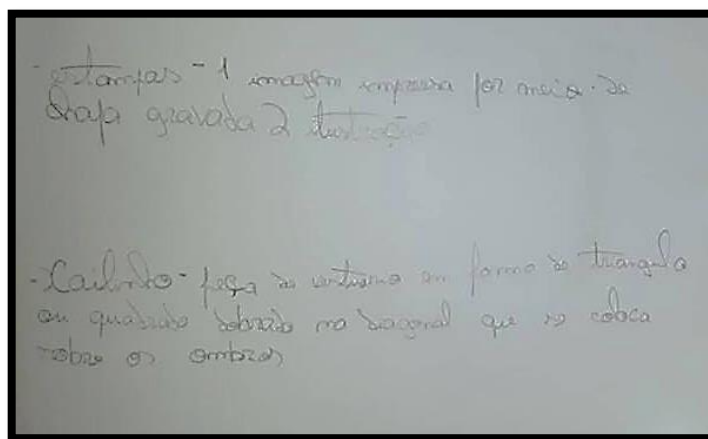 - estampas - 1 imagem impressa por meio de
chapa gravada 2 ilustração
- Xailinho - peça de vestuario em forma de triangulo
ou quadrado dobrado na diagonal que se coloca
sobre os ombros